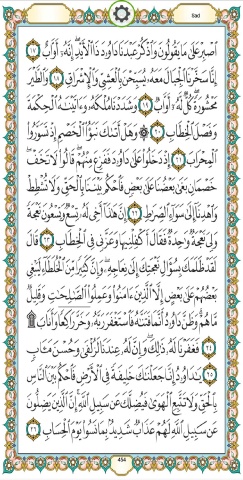 Sad
ٱصۡبِرۡ عَلَىٰ مَا يَقُولُونَ وَٱذۡكُرۡ عَبۡدَنَا دَاوُۥدَ ذَا ٱلۡأَيۡدِۖ إِنَّهُۥٓ أَوَّابٌ ١٧
إِنَّا سَخَّرۡنَا ٱلۡجِبَالَ مَعَهُۥ يُسَبِّحۡنَ بِٱلۡعَشِيِّ وَٱلۡإِشۡرَاقِ ١٨ وَٱلطَّيۡرَ
مَحۡشُورَةٗۖ كُلّٞ لَّهُۥٓ أَوَّابٞ ١٩ وَشَدَدۡنَا مُلۡكَهُۥ وَءَاتَيۡنَٰهُ ٱلۡحِكۡمَةَ
وَفَصۡلَ ٱلۡخِطَابِ ٢٠ ۞ وَهَلۡ أَتَىٰكَ نَبَؤُاْ ٱلۡخَصۡمِ إِذۡ تَسَوَّرُواْ
ٱلۡمِحۡرَابَ ٢١ إِذۡ دَخَلُواْ عَلَىٰ دَاوُۥدَ فَفَزِعَ مِنۡهُمۡۖ قَالُواْ لَا تَخَفۡۖ
خَصۡمَانِ بَغَىٰ بَعۡضُنَا عَلَىٰ بَعۡضٖ فَٱحۡكُم بَيۡنَنَا بِٱلۡحَقِّ وَلَا تُشۡطِطۡ
وَٱهۡدِنَآ إِلَىٰ سَوَآءِ ٱلصِّرَٰطِ ٢٢ إِنَّ هَٰذَآ أَخِي لَهُۥ تِسۡعٞ وَتِسۡعُونَ نَعۡجَةٗ
وَلِيَ نَعۡجَةٞ وَٰحِدَةٞ فَقَالَ أَكۡفِلۡنِيهَا وَعَزَّنِي فِي ٱلۡخِطَابِ ٢٣ قَالَ
لَقَدۡ ظَلَمَكَ بِسُؤَالِ نَعۡجَتِكَ إِلَىٰ نِعَاجِهِۦۖ وَإِنَّ كَثِيرٗا مِّنَ ٱلۡخُلَطَآءِ لَيَبۡغِي
بَعۡضُهُمۡ عَلَىٰ بَعۡضٍ إِلَّا ٱلَّذِينَ ءَامَنُواْ وَعَمِلُواْ ٱلصَّٰلِحَٰتِ وَقَلِيلٞ
مَّا هُمۡۗ وَظَنَّ دَاوُۥدُ أَنَّمَا فَتَنَّٰهُ فَٱسۡتَغۡفَرَ رَبَّهُۥ وَخَرَّۤ رَاكِعٗاۤ وَأَنَابَ۩
٢٤ فَغَفَرۡنَا لَهُۥ ذَٰلِكَۖ وَإِنَّ لَهُۥ عِندَنَا لَزُلۡفَىٰ وَحُسۡنَ مَـَٔابٖ
٢٥ يَٰدَاوُۥدُ إِنَّا جَعَلۡنَٰكَ خَلِيفَةٗ فِي ٱلۡأَرۡضِ فَٱحۡكُم بَيۡنَ ٱلنَّاسِ
بِٱلۡحَقِّ وَلَا تَتَّبِعِ ٱلۡهَوَىٰ فَيُضِلَّكَ عَن سَبِيلِ ٱللَّهِۚ إِنَّ ٱلَّذِينَ يَضِلُّونَ
عَن سَبِيلِ ٱللَّهِ لَهُمۡ عَذَابٞ شَدِيدُۢ بِمَا نَسُواْ يَوۡمَ ٱلۡحِسَابِ ٢٦
454